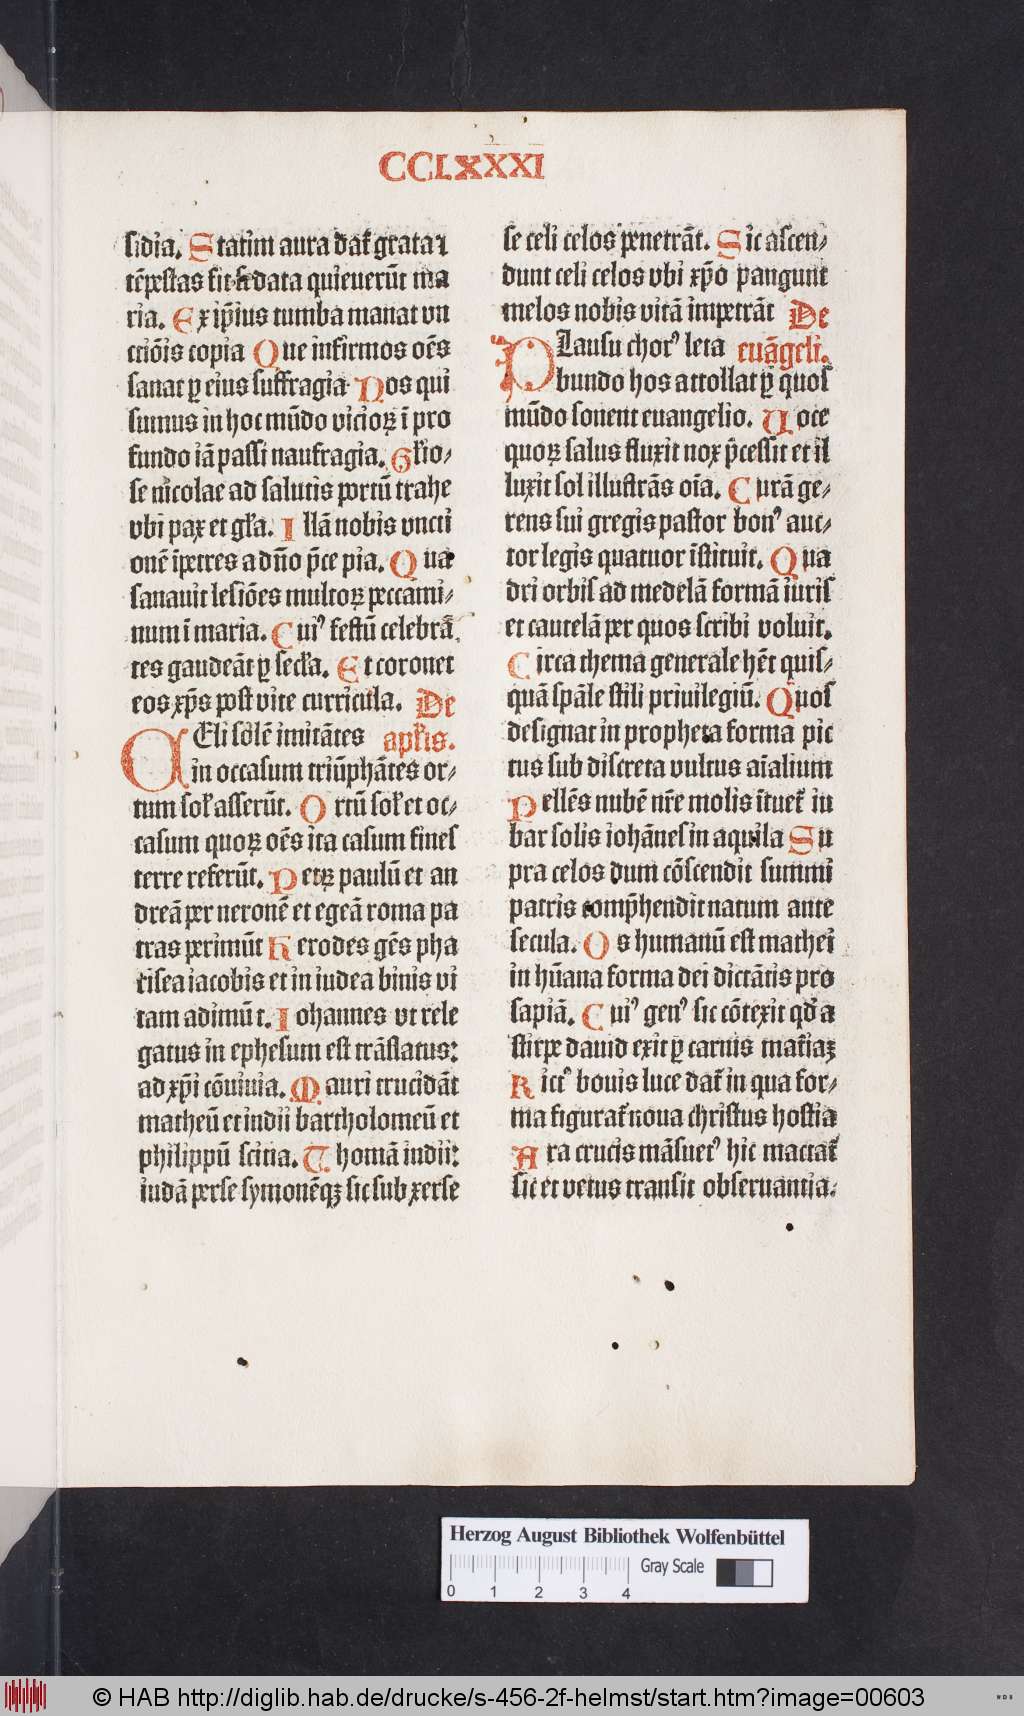 CCLXXXI
sidia. Statim aura dat̉ grata ⁊
tẽpestas fit sedata quieuerũt ma
ria. Ex ip̃ius tumba manat vn
ctiõis copia Que infirmos oẽs
sanat ꝑ eius suffragia Nos qui
sumus in hoc mũdo vicioꝝ ĩ pro
fundo iã passi naufragia. Gl̃io⸗
se nicolae ad salutis portũ trahe
vbi pax et gl̃a. Illã nobis vncti
onẽ ĩpetres a dño p̃ce pia. Qua
sanauit lesiões multoꝝ peccami⸗
num ĩ maria. Cuiꝰ festũ celebrã
tes gaudeãt ꝑ secl̃a. Et coronet
eos xp̃s post vite curricula. De
CEli solẽ imitãtes apl̃is.
in occasum triũphãtes or⸗
tum sol̃ asserũt. Ortũ sol̃ et oc⸗
casum quoꝝ oẽs ita casum fines
terre referũt. Petꝝ paulũ et an
dreã per neronẽ et egeã roma pa
tras perimũt Herodes gẽs pha
risea iacobis et in iudea binis vi
tam adimũt. Iohannes vt rele
gatus in ephesum est trãslatus:
ad xp̃i cõuiuia. Mauri trucidãt
matheũ et indii bartholomeũ et
philippũ scitia. Thomã indii:
iudã perse symonẽqꝫ sic sub xerse
se celi celos penetrãt. Sic ascen⸗
dunt celi celos vbi xp̃o pangunt
melos nobis vitã impetrãt De
PLausu chorꝰ leta euãgeli.
bundo hos attollat ꝑ quos
mũdo sonent euangelio. Uoce
quoꝝ salus fluxit nox p̃cessit et il
luxit sol illustrãs oĩa. Curã ge⸗
rens sui gregis pastor bonꝰ auc⸗
tor legis quatuor ĩstituit. Qua
dri orbis ad medelã formã iuris
et cautelã per quos scribi voluit.
Circa thema generale hẽt quis⸗
quã sp̃ale stili priuilegiũ. Quos
designat in propheta forma pic
tus sub discreta vultus aĩalium
Pellẽs nubẽ nr̃e molis ĩtuet̉ iu
bar solis iohãnes in aquila Su
pra celos dum cõscendit summi
patris comp̃hendit natum ante
secula. Os humanũ est mathei
in hũana forma dei dictãtis pro
sapiã. Cuiꝰ genꝰ sic cõtexit qd̃ a
stirpe dauid exit ꝑ carnis mat̃iaꝫ
Rictꝰ bouis luce dat̉ in qua for⸗
ma figurat̉ noua christus hostia
Ara crucis mãsuetꝰ hic mactat̉
sic et vetus transit obseruantia.
Herzog August Bibliothek Wolfenbüttel
Gray Scale
0 1 2 3 4
© HAB http://diglib.hab.de/drucke/s-456-2f-helmst/start.htm?image=00603